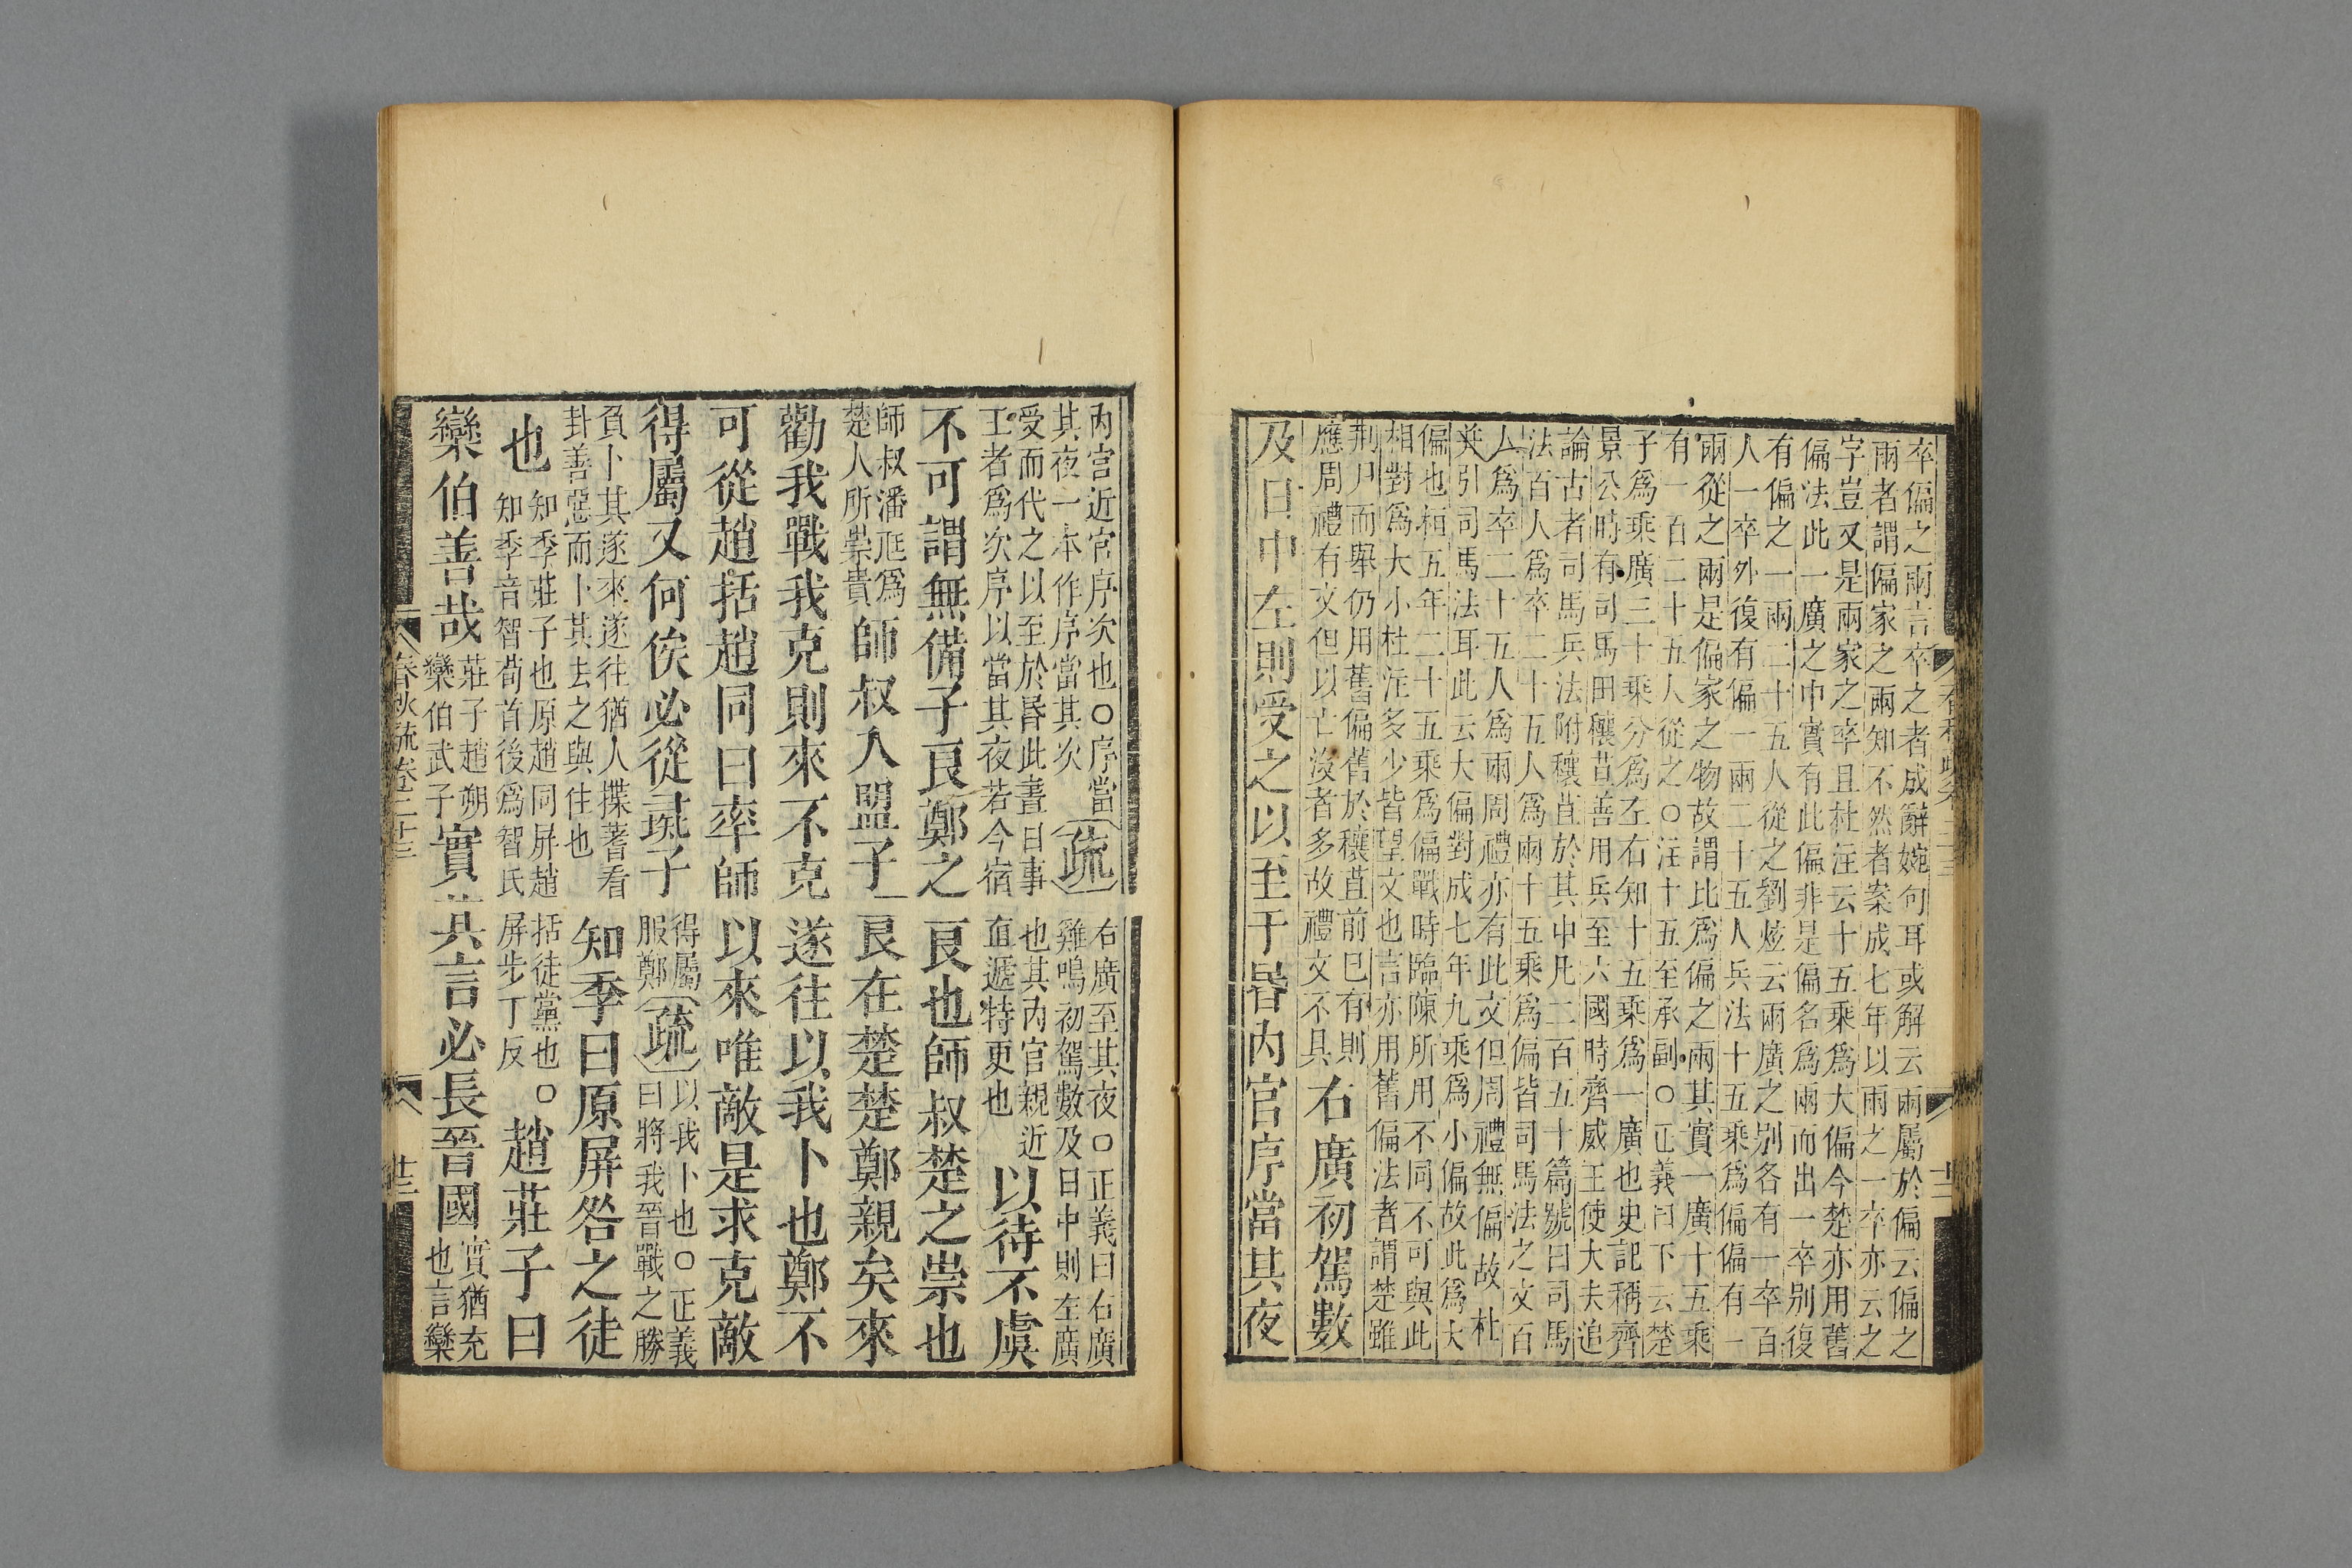 卒偏之兩言卒之者成辭婉句耳或解云兩屬於偏云偏之
兩者謂偏家之兩知不然者案成七年以兩之一卒亦云之
字豈又是兩家之卒且杜注云十五乘爲大偏今楚亦用舊
偏法此一廣之中實有此偏非是偏名爲兩而出一卒别復
有偏之一兩二十五人從之劉炫云兩廣之别各有一卒百
人一卒外復有偏一兩二十五人兵法十五乘爲偏偏有一
兩從之兩是偏家之物故謂比爲偏之兩其實一廣十五乘
有一百二十五人從之○注十五至承副○正義曰下云楚
子爲乘廣三十乘分爲左右知十五乘爲一廣也史記稱齊
景公時有司馬田穰苴善用兵至六國時齊威王使大夫追
論古者司馬兵法附穰苴於其中凡二百五十篇號曰司馬
法百人爲卒二十五人爲兩十五乘爲偏皆司馬法之文百
人爲卒二十五人爲兩周禮亦有此文但周禮無偏故杜
并引司馬法耳此云大偏對成七年九乘爲小偏故此爲大
偏也桓五年二十五乘爲偏戰時臨陳所用不同不可與此
相對爲大小杜注多少皆望文也言亦用舊偏法者謂楚雖
荆尸而舉仍用舊偏舊於穰苴前已有則
應周禮有文但以亡沒者多故禮文不具
右廣初駕數
及日中左則受之以至于昬内官序當其夜
内官近官序次也○序當
其夜一本作序當其次
疏
右廣至其夜○正義曰右廣
雞鳴初駕數及日中則左廣
受而代之以至於昬此晝日事也其内官親近
王者爲次序以當其夜若今宿直遞持更也
以待不虞
不可謂無備子良鄭之良也師叔楚之崇也
師叔潘尫爲
楚人所崇貴
師叔入盟子良在楚楚鄭親矣來
勸我戰我克則來不克遂往以我卜也鄭不
可從趙括趙同曰率師以來唯敵是求克敵
得屬又何俟必從彘子
得屬
服鄭
疏
以我卜也○正義
曰將我晉戰之勝
負卜其遂來遂往猶人揲蓍看
卦善惡而卜其去之與住也
知季曰原屏咎之徒
也
知季莊子也原趙同屏趙括徒黨也○
知季音智荀首後爲智氏屏步丁反
趙莊子曰
欒伯善哉
莊子趙朔
欒伯武子
實其言必長晉國
實猶充
也言欒
春秋疏卷二十三